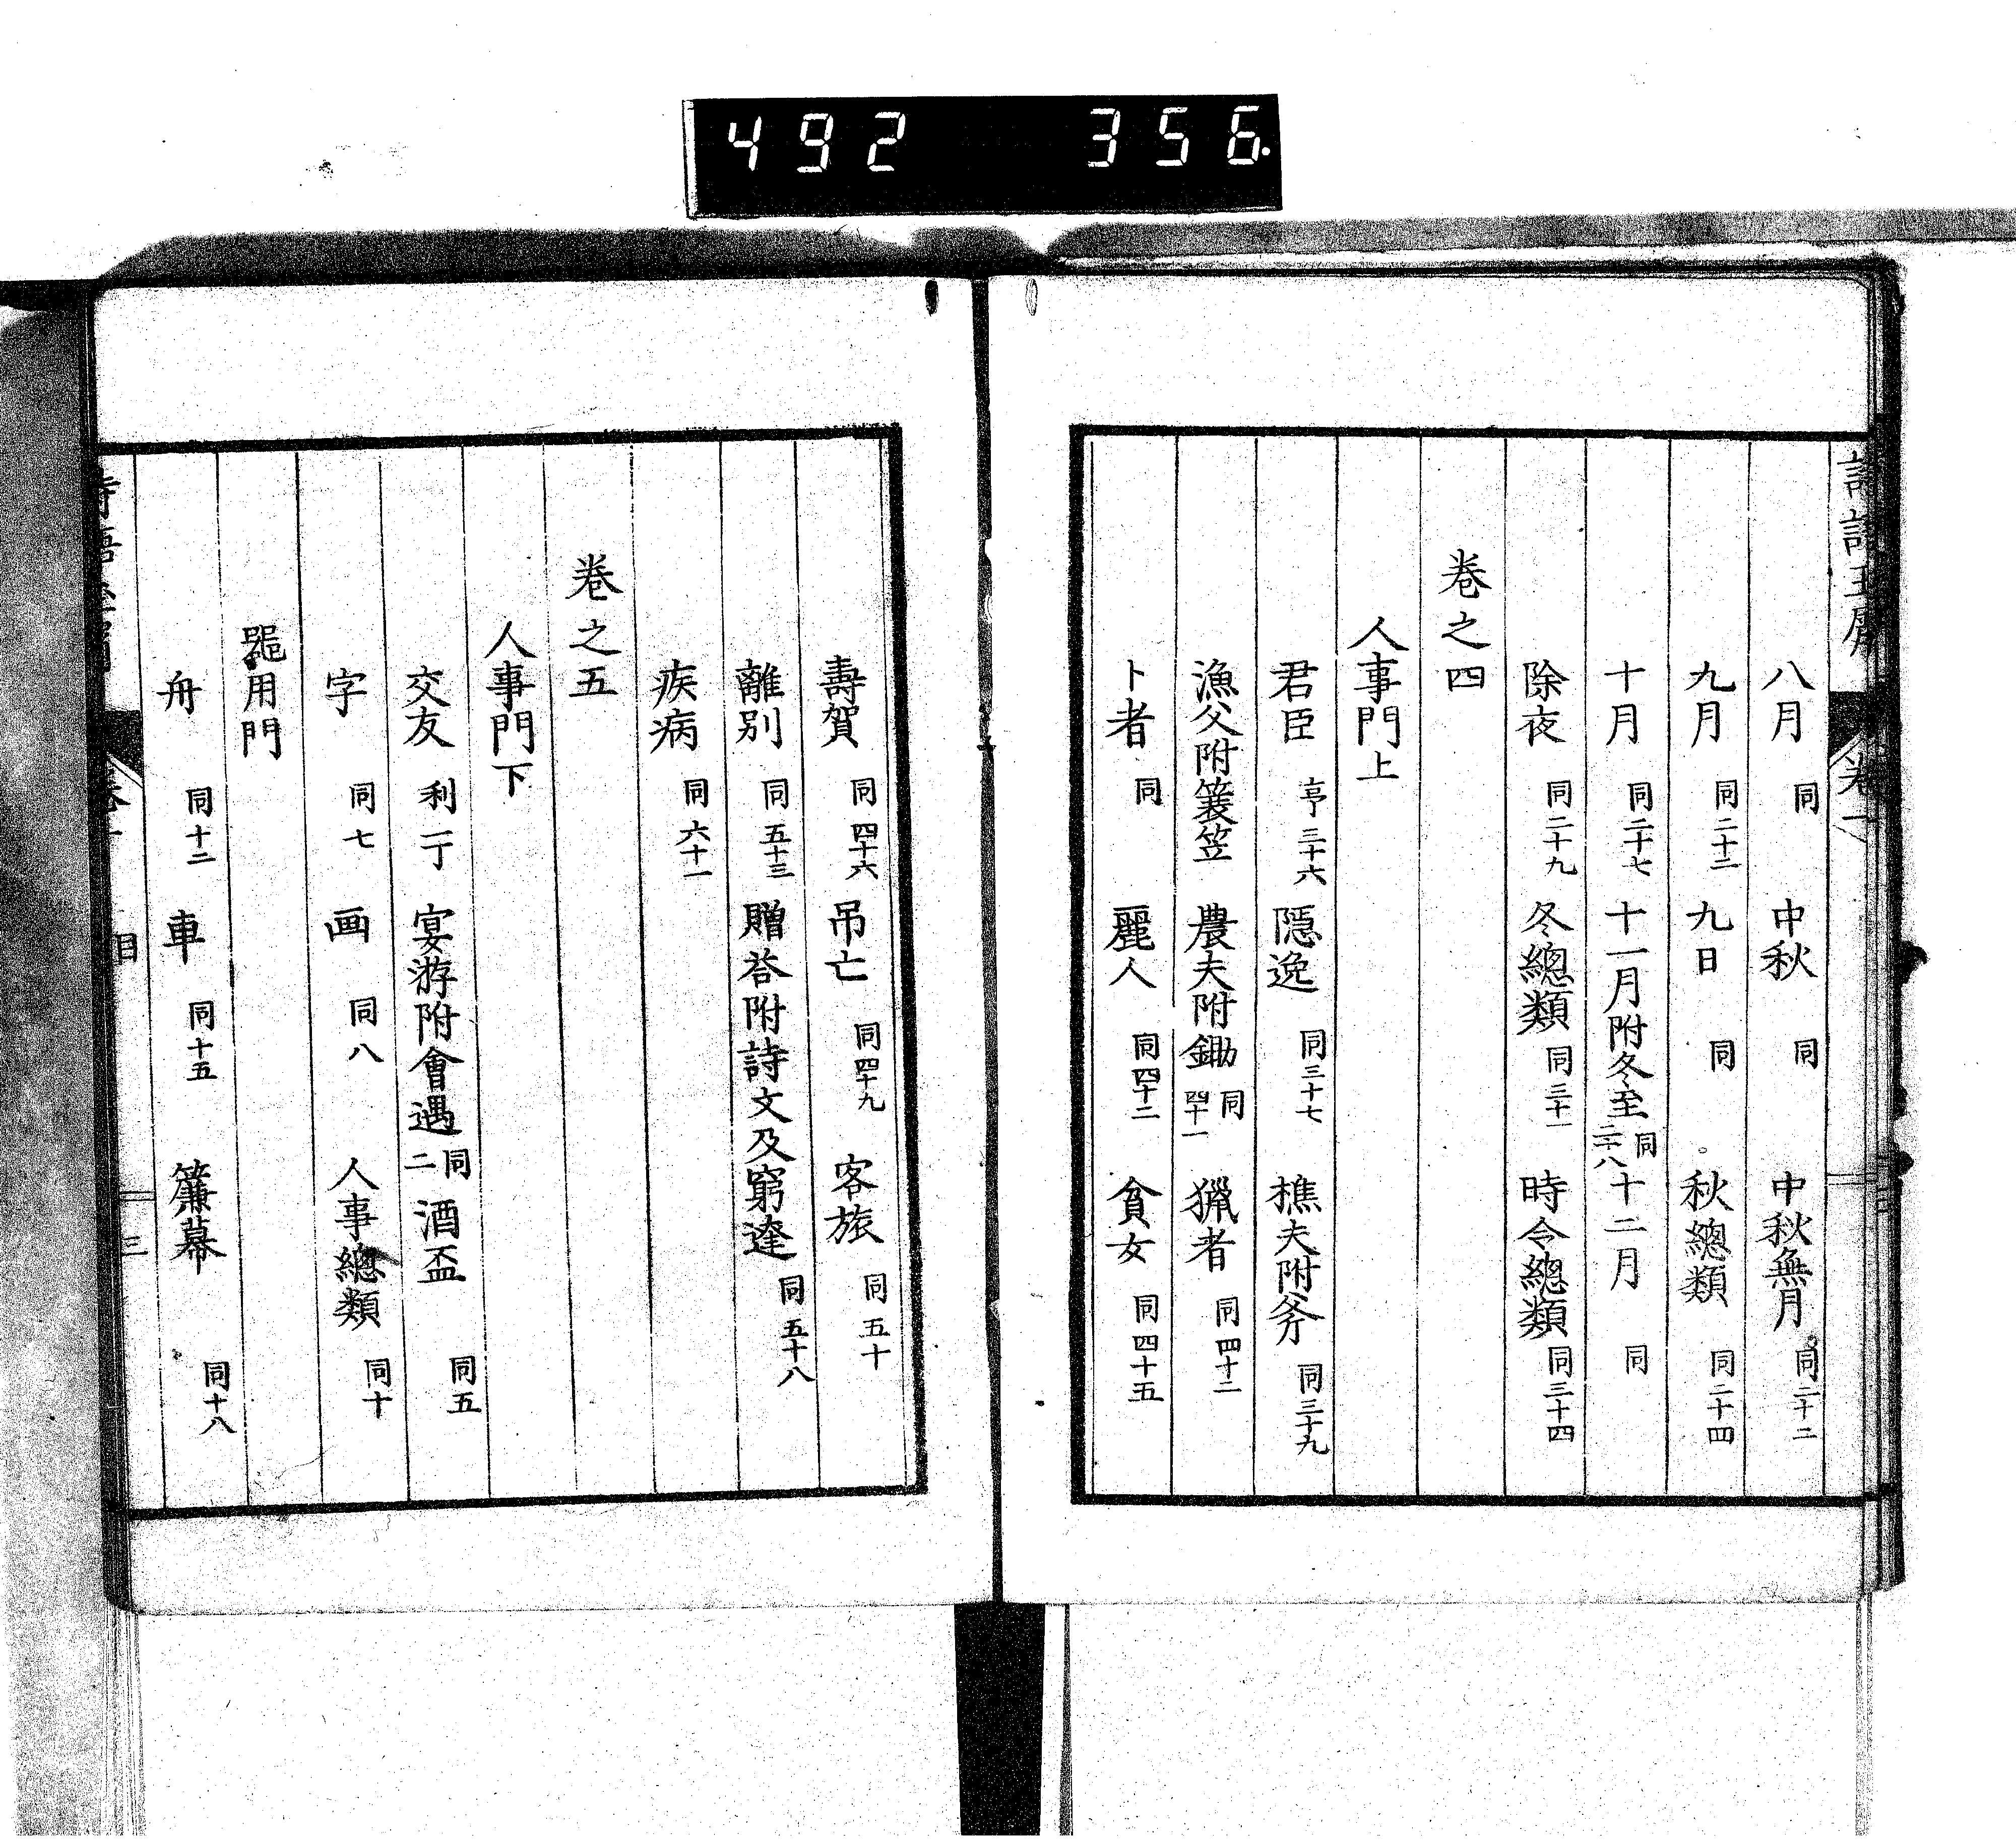 492 356
八月 同 中秋 同 中秋無月 同二十二
九月 同二十二 九日 同 秋總類 同二十四
十月 同二十七 十一月附冬至 同二十八 十二月 同
除夜 同二十九 冬總類 同三十一 時令總類 同三十四
卷之四
人事門上
君臣 亨三十六 隱逸 同三十七 樵夫附斧 同三十九
漁父附簑笠 農夫附鋤 同四十一 獵者 同四十二
卜者 同 麗人 同四十二 貧女 同四十五
壽賀 同四十六 吊亡 同四十九 客旅 同五十
離别 同五十三 贈答附詩文及窮達 同五十八
疾病 同六十一
卷之五
人事門下
交友 利一丁 宴游附會遇 同二 酒盃 同五
字 同七 画 同八 人事總類 同十
噐用門
舟 同十二 車 同十五 簾幕 同十八
目 三